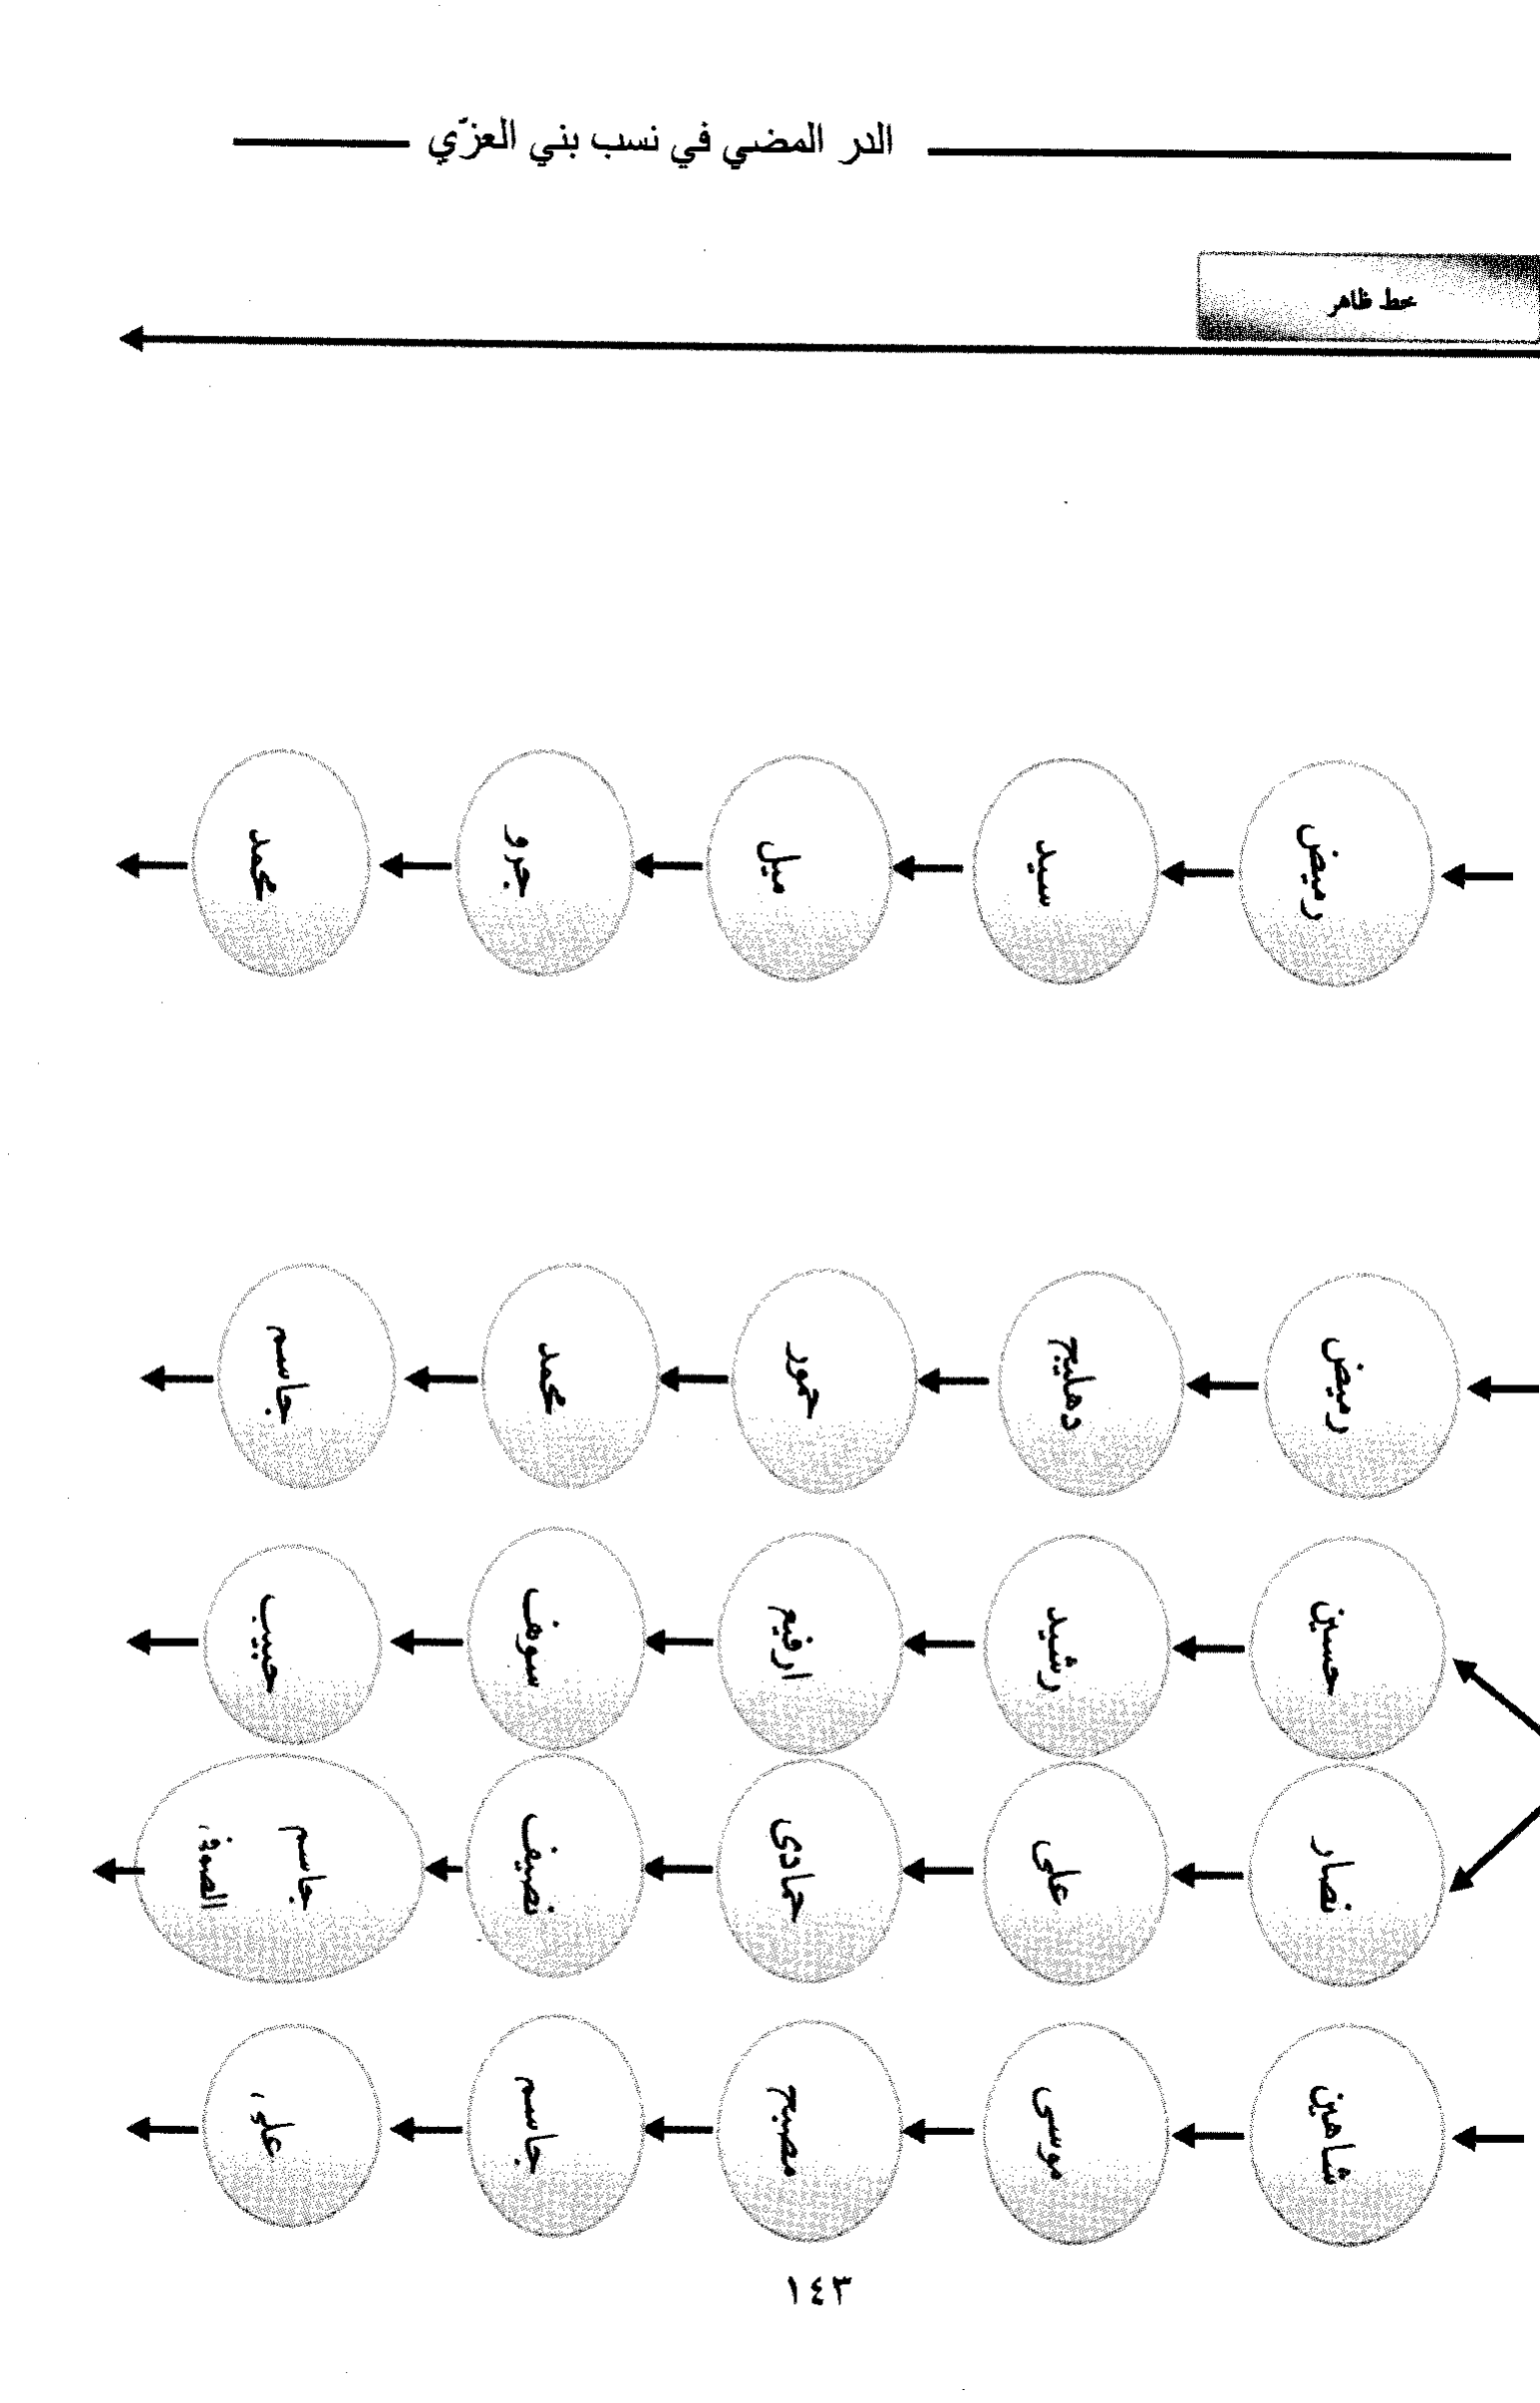 الدر المضي في نسب بني العزّي
خط ظاهر
رميض
سيد
ميل
جرو
محمد
رميض
دهليج
حمور
محمد
جاسم
حسين
رشيد
ارفيع
سوهف
حبيب
نصار
على
حمادى
نصيف
جاسم
شاهين
موسى
مصبح
جاسم
على
١٤٣